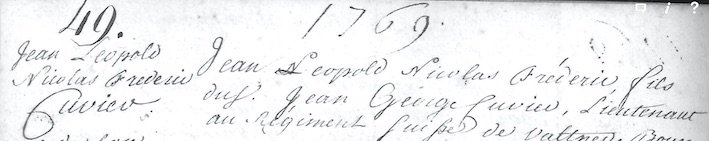 49. 1769.
Jean Leopold
Nicolas Frederic
Cuvier
Jean Leopold Nicolas Fréderic, fils
du S.r Jean George Cuvier, Lieutenant
au Régiment Suisse de Valtner